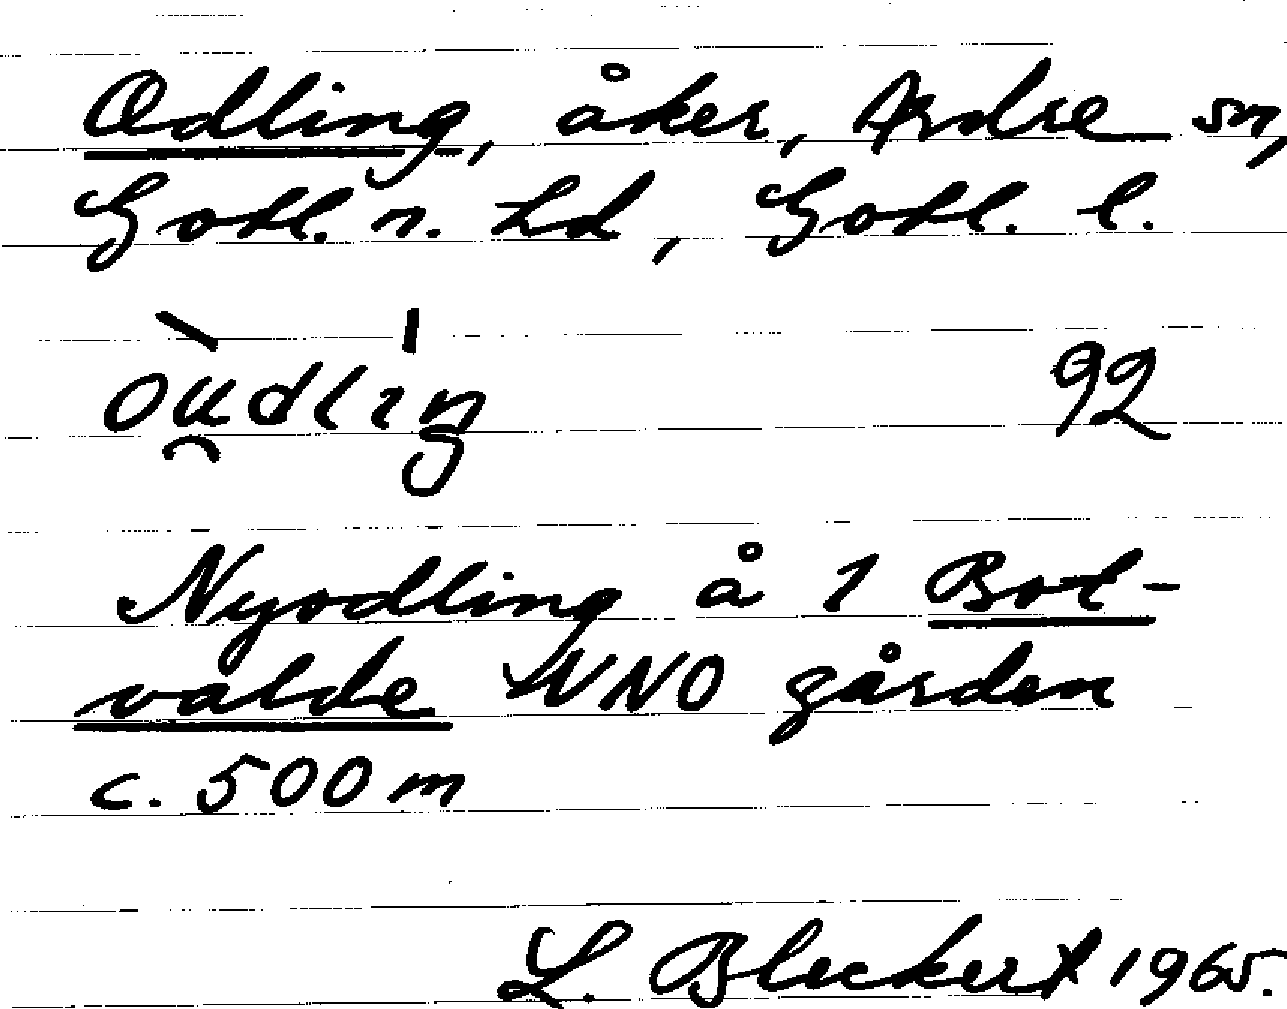 Odling, åker, Ardre sn,
Gotl. n. hd, Gotl. l.
òu̯dlíŋ 92
Nyodling å 1 Bot-
valde NNO gården
c. 500 m
L. Bleckert 1965.